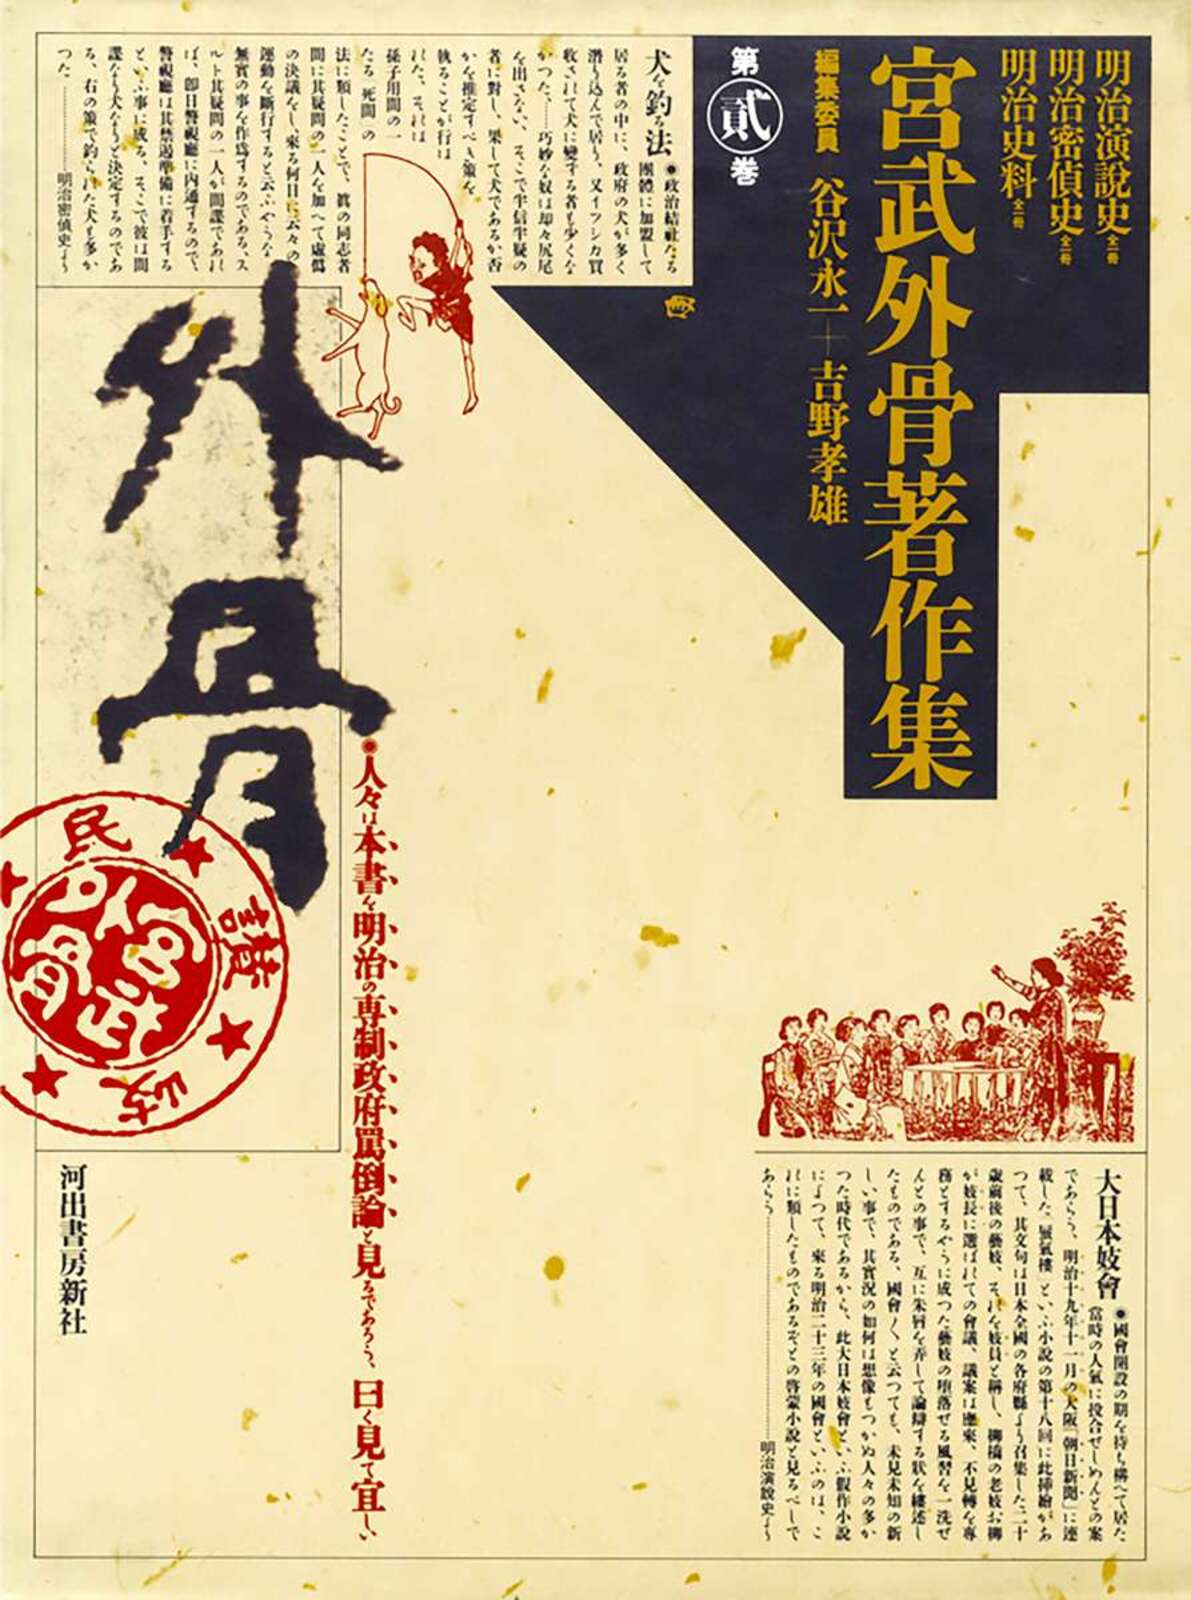 明治演説史 全一冊
明治密偵史 全一冊
明治史料 全一冊
宮武外骨著作集
編集委員 谷沢永一＋吉野孝雄
第貳巻
犬を釣る法
●政治結社たる
團體に加盟して
居る者の中に、政府の犬が多く
潜り込んで居り、又イツシカ買
収されて犬に變する者も少くな
かつた、……巧妙な奴は却々尻尾
を出さない、そこで半信半疑の
者に對し、果して犬であるか否
かを推定すべき策を
執ることが行は
れた、それは
孫子用間の一
たる「死間」の
法に類したことで、眞の同志者
間に其疑問の一人を加へて虚僞
の決議をし、來る何日に云々の
運動を斷行すると云ふやうな
無實の事を作爲するのである、ス
ルト其疑問の一人が間諜であれ
ば、即日警視廳に内通するので、
警視廳は其禁遏準備に着手する
といふ事に成る、そこで彼は間
諜なり犬なりと決定するのであ
る、右の策で釣られた犬も多か
つた
明治密偵史より
外骨
民
讃
岐
●人々は本書を明治の専制政府罵倒論と見るであらう、曰く見て宜しい
河出書房新社
大日本妓會
●國會開設の期を待ち構へて居た
當時の人氣に投合せしめんとの案
であらう、明治十九年十一月の大阪「朝日新聞」に連
載した「蜃氣樓」といふ小説の第十八回に此挿繪があ
つて、其文句は日本全國の各府縣より召集した二十
歳前後の藝妓、それを妓員と稱し、柳橋の老妓お柳
が妓長に選ばれての會議、議案は應來、不見轉を專
務とするやうに成つた藝妓の堕落せる風習を一洗せ
んとの事で、互に朱唇を弄して論辯する狀を縷述し
たものである、國會〱と云つても、未見未知の新
しい事で、其實況の如何は想像もつかぬ人々の多か
つた時代であるから、此大日本妓會といふ假作小説
によつて、來る明治二十三年の國會といふのは、こ
れに類したものであるぞとの啓蒙小説と見るべしで
あらう
明治演說史より